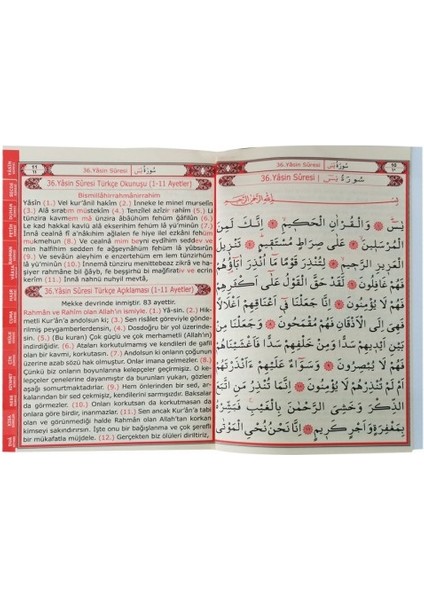 11
36.Yâsin Sûresi
سُورَةُ يٰسٓ
36.Yâsin Sûresi Türkçe Okunuşu (1-11 Ayetler)
Bismillâhirrahmânirrahim
Yâsîn (1.) Vel kur'ânil hakîm (2.) İnneke le minel murselîn
(3.) Alâ sıratım müstekîm (4.) Tenzîlel azîzir rahîm (5.) Li
tünzira kavmem mâ ünzira âbâühüm fehüm ğâfilûn (6.)
Le kad hakkal kavlü alâ ekserihim fehüm lâ yü'minûn (7.)
İnnâ cealnâ fî a'nâkıhim ağlalen fe hiye ilel ezkâni fehüm
mukmehun (8.) Ve cealnâ mim beyni eydîhim seddev ve
min halfihim sedden fe ağşeynâhüm fehüm lâ yübsirûn
(9.) Ve sevâün aleyhim e enzertehüm em lem tünzirhüm
lâ yü'minûn (10.) İnnemâ tünziru menittebeaz zikra ve ha-
şiyer rahmâne bil ğâyb, fe beşşirhü bi mağfirativ ve ecrin
kerîm (11.) İnnâ nahnü nuhyil mevtâ,
36.Yâsin Sûresi Türkçe Açıklaması (1-11 Ayetler)
Mekke devrinde inmiştir. 83 ayettir.
Rahmân ve Rahîm olan Allah'ın ismiyle. (1.) Yâ-sin. (2.) Hik-
metli Kur'ân'a andolsun ki; (3.) Sen risâlet göreviyle gönde-
rilmiş peygamberlerdensin, (4.) Dosdoğru bir yol üzerinde-
sin. (5.) (Bu kuran) Çok güçlü ve çok merhametli olanın in-
dirmesidir. (6.) Ataları korkutulmamış ve kendileri de gafil
olan bir kavmi, korkutasın. (7.) Andolsun ki onların çoğunun
üzerine azab sözü hak olmuştur. Onlar imana gelmezler. (8.)
Çünkü biz onların boyunlarına kelepçeler geçirmişiz. O ke-
lepçeler çenelerine dayanmıştır da burunları yukarı, gözleri
aşağı somurtmaktadırlar. (9.) Hem önlerinden bir sed, ar-
kalarından bir sed çekmişiz, kendilerini sarmışızdır. Baksalar
da görmezler. (10.) Onları korkutsan da korkutmasan da
onlara göre birdir, inanmazlar. (11.) Sen ancak Kur'ân'a tabi
olan ve görünmediği halde Rahmân olan Allah'tan korkan
kimseyi sakındırırsın. İşte onu bir bağışlanma ve çok şerefli
bir mükafatla müjdele. (12.) Gerçekten biz ölüleri diriltiriz,
10
36.Yâsin Sûresi
سُورَةُ يٰسٓ
36.Yâsin Sûresi
سُورَةُ يٰسٓ
يٰسٓ ﴿١﴾ وَالْقُرْاٰنِ الْحَكٖيمِ ﴿٢﴾ اِنَّكَ لَمِنَ
الْمُرْسَلٖينَ ﴿٣﴾ عَلٰى صِرَاطٍ مُسْتَقٖيمٍ ﴿٤﴾ تَنْزٖيلَ
الْعَزٖيزِ الرَّحٖيمِ ﴿٥﴾ لِتُنْذِرَ قَوْمًا مَٓا اُنْذِرَ اٰبَٓاؤُ۬هُمْ
فَهُمْ غَافِلُونَ ﴿٦﴾ لَقَدْ حَقَّ الْقَوْلُ عَلٰٓى اَكْثَرِهِمْ
فَهُمْ لَا يُؤْمِنُونَ ﴿٧﴾ اِنَّا جَعَلْنَا فٖٓى اَعْنَاقِهِمْ اَغْلَالًا
فَهِىَ اِلَى الْاَذْقَانِ فَهُمْ مُقْمَحُونَ ﴿٨﴾ وَجَعَلْنَا مِنْ
بَيْنِ اَيْدٖيهِمْ سَدًّا وَمِنْ خَلْفِهِمْ سَدًّا فَاَغْشَيْنَاهُمْ
فَهُمْ لَا يُبْصِرُونَ ﴿٩﴾ وَسَوَٓاءٌ عَلَيْهِمْ ءَاَنْذَرْتَهُمْ
اَمْ لَمْ تُنْذِرْهُمْ لَا يُؤْمِنُونَ ﴿١٠﴾ اِنَّمَا تُنْذِرُ مَنِ اتَّبَعَ
الذِّكْرَ وَخَشِىَ الرَّحْمٰنَ بِالْغَيْبِ فَبَشِّرْهُ
بِمَغْفِرَةٍ وَاَجْرٍ كَرٖيمٍ ﴿١١﴾ اِنَّا نَحْنُ نُحْيِى الْمَوْتٰى